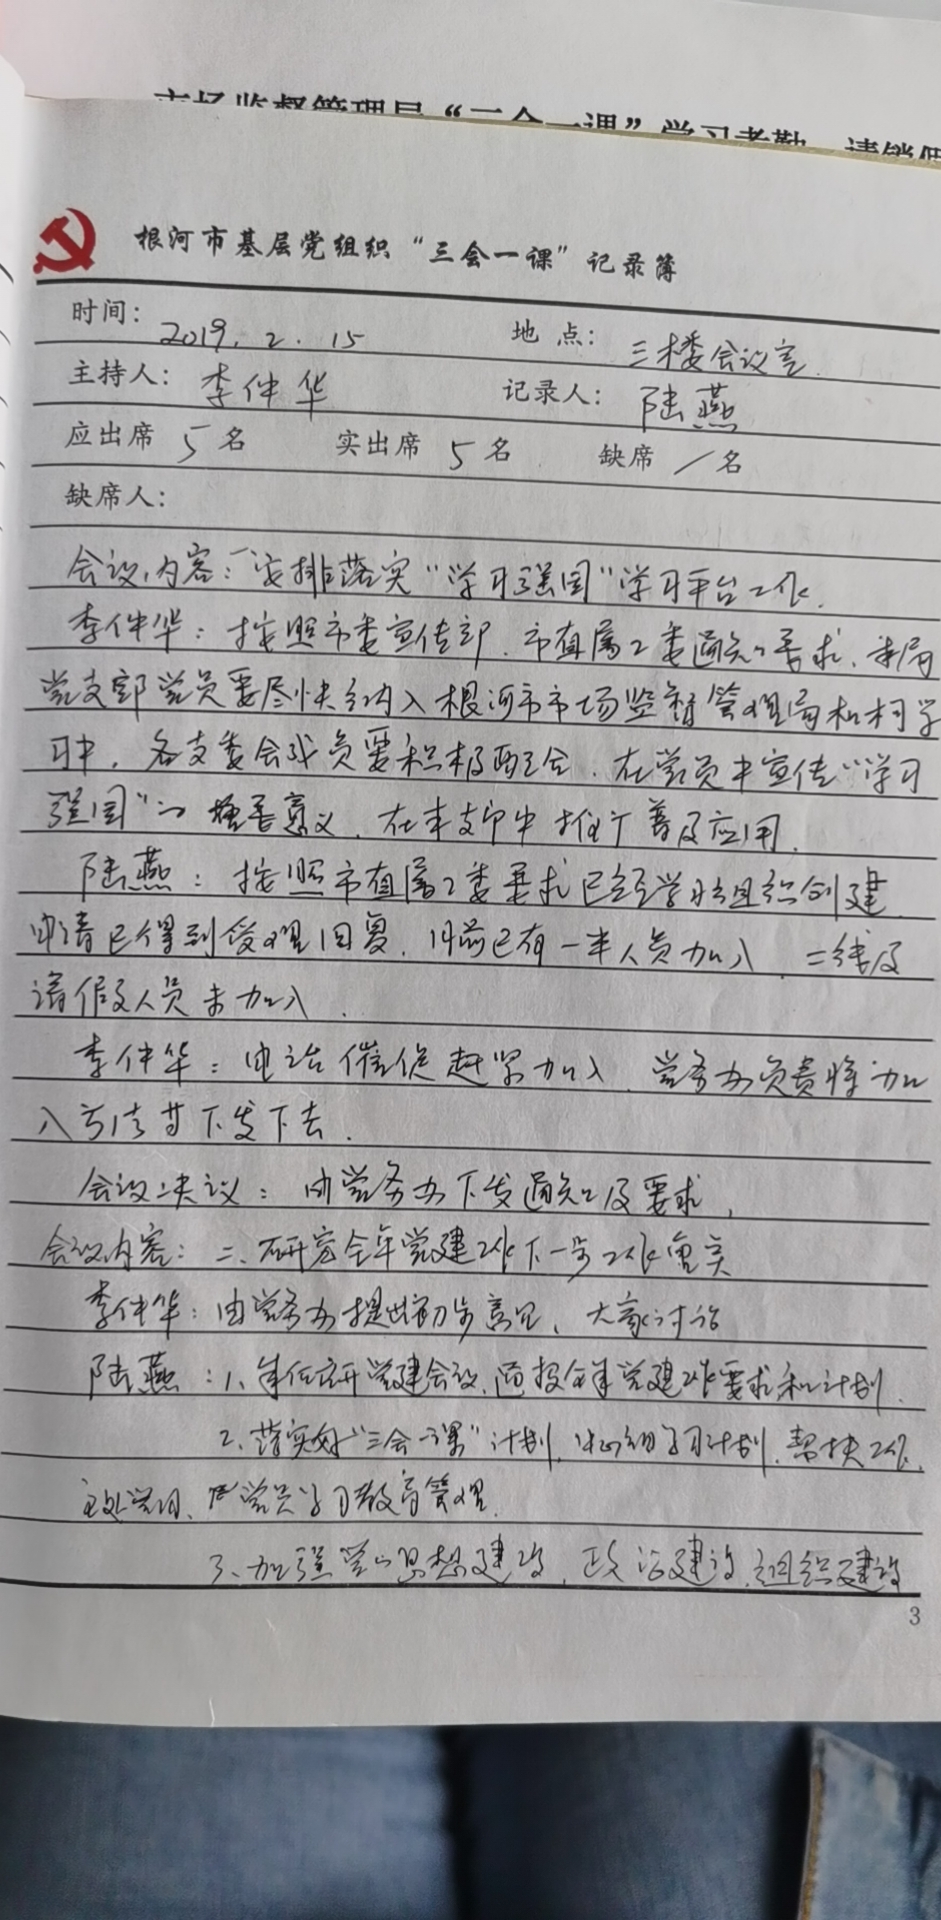 市场监督管理局“三会一课”学习考勤、请销假
根河市基层党组织“三会一课”记录簿
时间: 2019.2.15 地点: 三楼会议室
主持人: 李仲华 记录人: 陆燕
应出席 5 名 实出席 5 名 缺席 / 名
缺席人:
会议内容:一、安排落实“学习强国”学习平台工作.
李仲华:按照市委宣传部、市直属工委通知要求,本局
党支部党员要尽快纳入根河市市场监督管理局
中,各支委会成员要积极配合,在党员中宣传“学习
强国”的重要意义,在本支部中推广普及应用.
陆燕:按照市直属工委要求已经 组织创建
申请已得到受理回复,目前已有一半人员加入,二线及
请假人员未加入.
李仲华:电话催促赶紧加入,党务办负责将加
入方法等下发下去.
会议决议:由党务办下发通知及要求,
会议内容:二、研究全年党建工作下一步工作
李仲华:由党务办提出初步意见,大家讨论
陆燕:1、 召开党建会议, 全年党建工作要求和计划.
2、落实好“三会一课”计划,中心组学习计划,帮扶工作,
党员学习教育管理.
3、加强党的思想建设,政治建设,组织建设
3